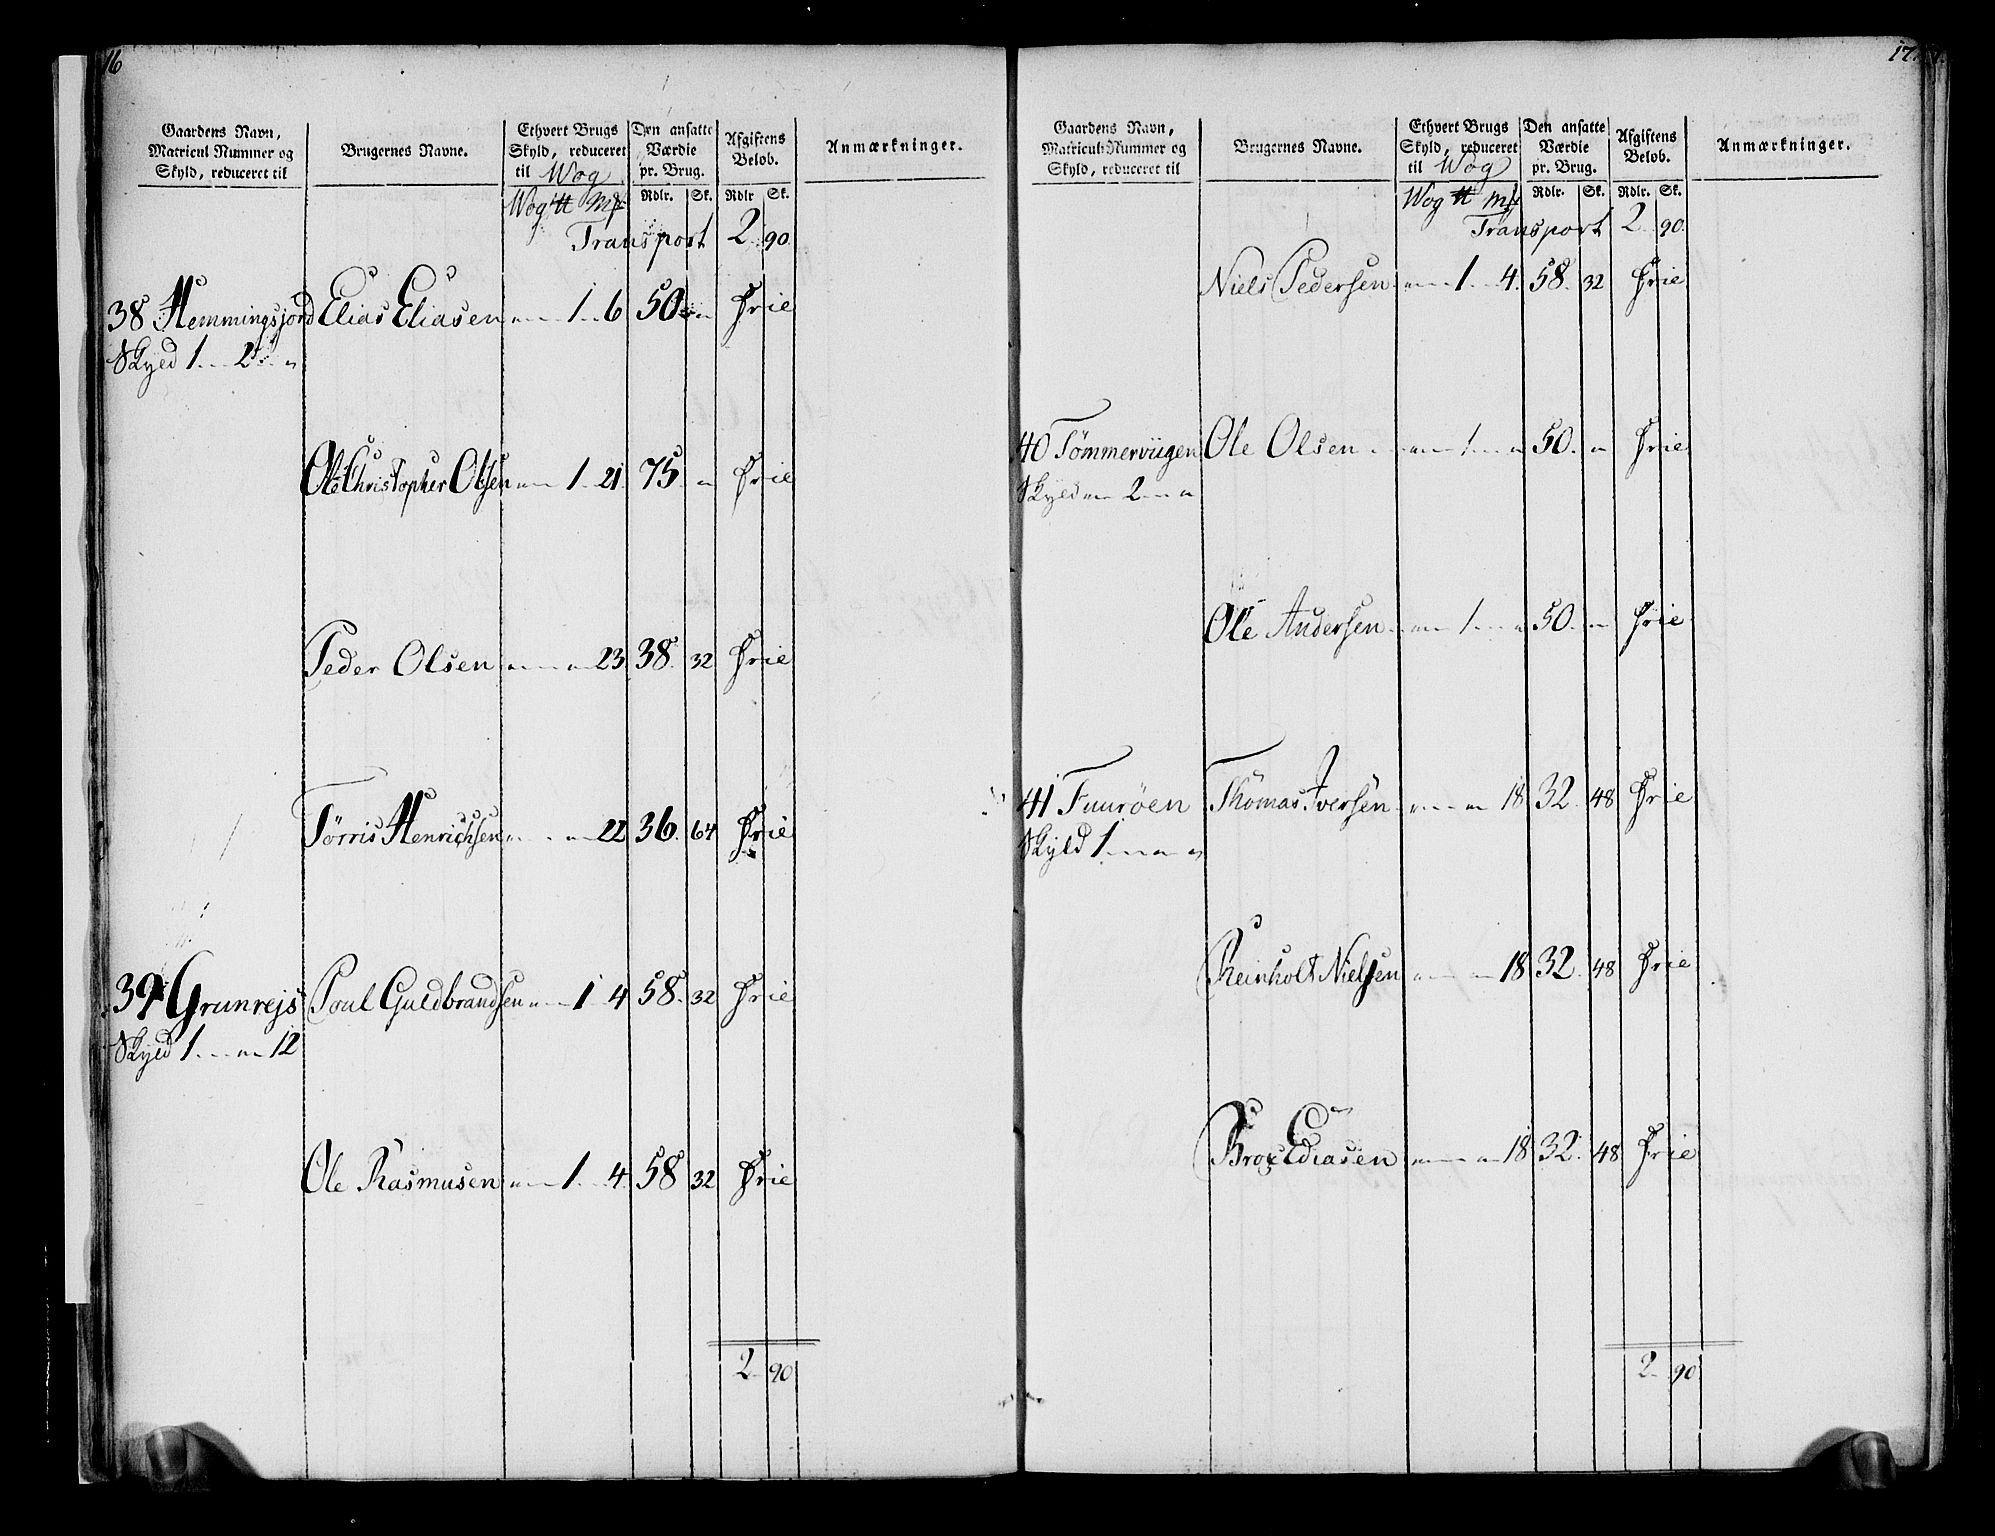 16
Gaardens Navn, Matricul Nummer og Skyld, reduceret til | Brugernes Navne. | Ethvert Brugs Skyld, reduceret til Wog | Den ansatte Værdie pr. Brug. | Afgiftens Beløb. | Anmærkninger.
Wog ℔ Mk | Rdlr. | Sk. | Rdlr | Sk.
Transport 2 90.
38 Hemmingsjord Elias Eliasen „ 1 „ 6 50 „ „ Frie
Skyld 1 „ 2 „ „
Ole Christopher Olsen „ 1 „ 21. 75 „ Frie
Peder Olsen „ „ 23 38. 32 Frie
Tørris Henrichsen „ „ 22 36. 64 Frie
39 Grunrejs Poul Guldbrandsen „ 1 „ 4 58. 32 Frie
Skyld 1 „ „ 12
Ole Rasmusen „ 1 „ 4. 58 32 Frie
2 90
17.
Gaardens Navn, Matricul-Nummer og Skyld, reduceret til | Brugernes Navne. | Ethvert Brugs Skyld, reduceret til Wog | Den ansatte Værdie pr. Brug. | Afgiftens Beløb. | Anmærkninger.
Wog ℔ Mk | Rdlr. | Sk. | Rdlr. | Sk.
Transport 2 90.
Niels Pedersen „ 1 „ 4. 58. 32 Frie
40 Tömmerviigen Ole Olsen „ 1 „ „ 50. „ Frie
Skyld „ 2 „ „
Ole Andersen „ 1 „ „ 50. „ Frie
41 Fuurøen Thomas Iversen „ „ 18 32. 48 Frie
Skyld 1 „ „ „
Reinholt Nielsen „ „ 18 32. 48 Frie
„ „ 18 32. 48 Frie
2 90